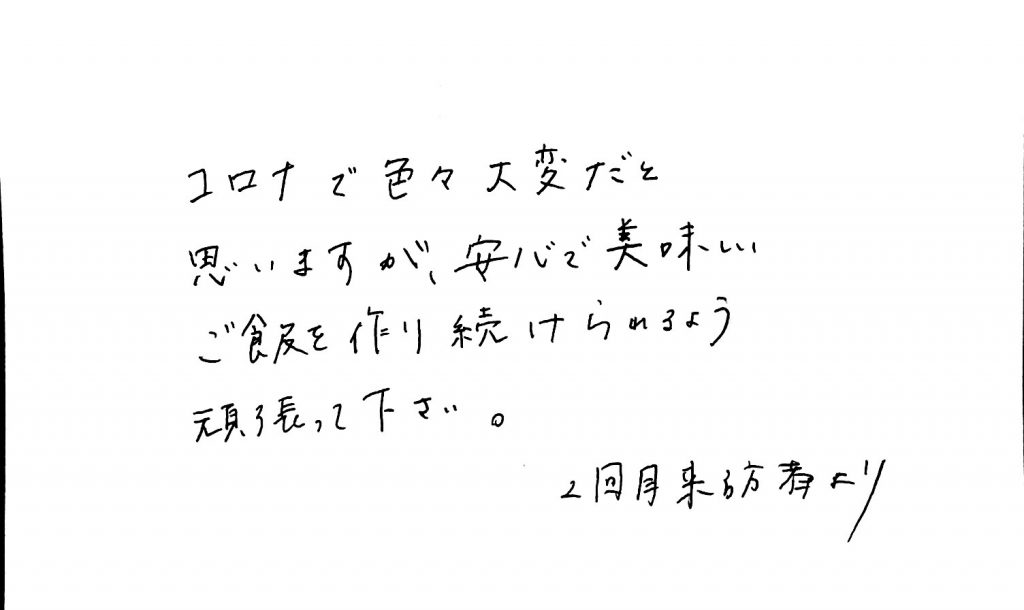 コロナで色々大変だと
思いますが、安心で美味しい
ご飯を作り続けられるよう
頑張って下さい。
2回目来訪者より